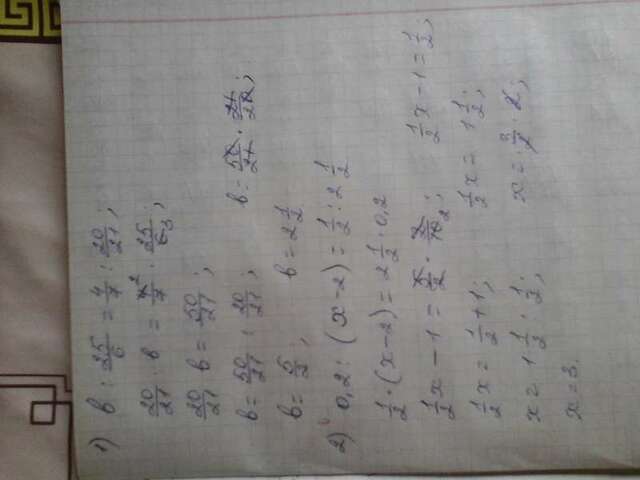 1) в : 25/6 = 4/7 : 20/21;
20/21 · в = 4²/7 · 25/6₃;
20/21 в = 50/21;
в = 50/21 : 20/21; в = 50/21 · 21/20;
в = 5/2; в = 2 1/2
2) 0,2 : (x - 2) = 1/2 : 2 1/2
1/2 · (x - 2) = 2 1/2 · 0,2
1/2 x - 1 = 5/2 · 2/10₂; 1/2 x - 1 = 1/2;
1/2 x = 1/2 + 1; 1/2 x = 1 1/2;
x = 1 1/2 : 1/2; x = 3/2 · 2;
x = 3.